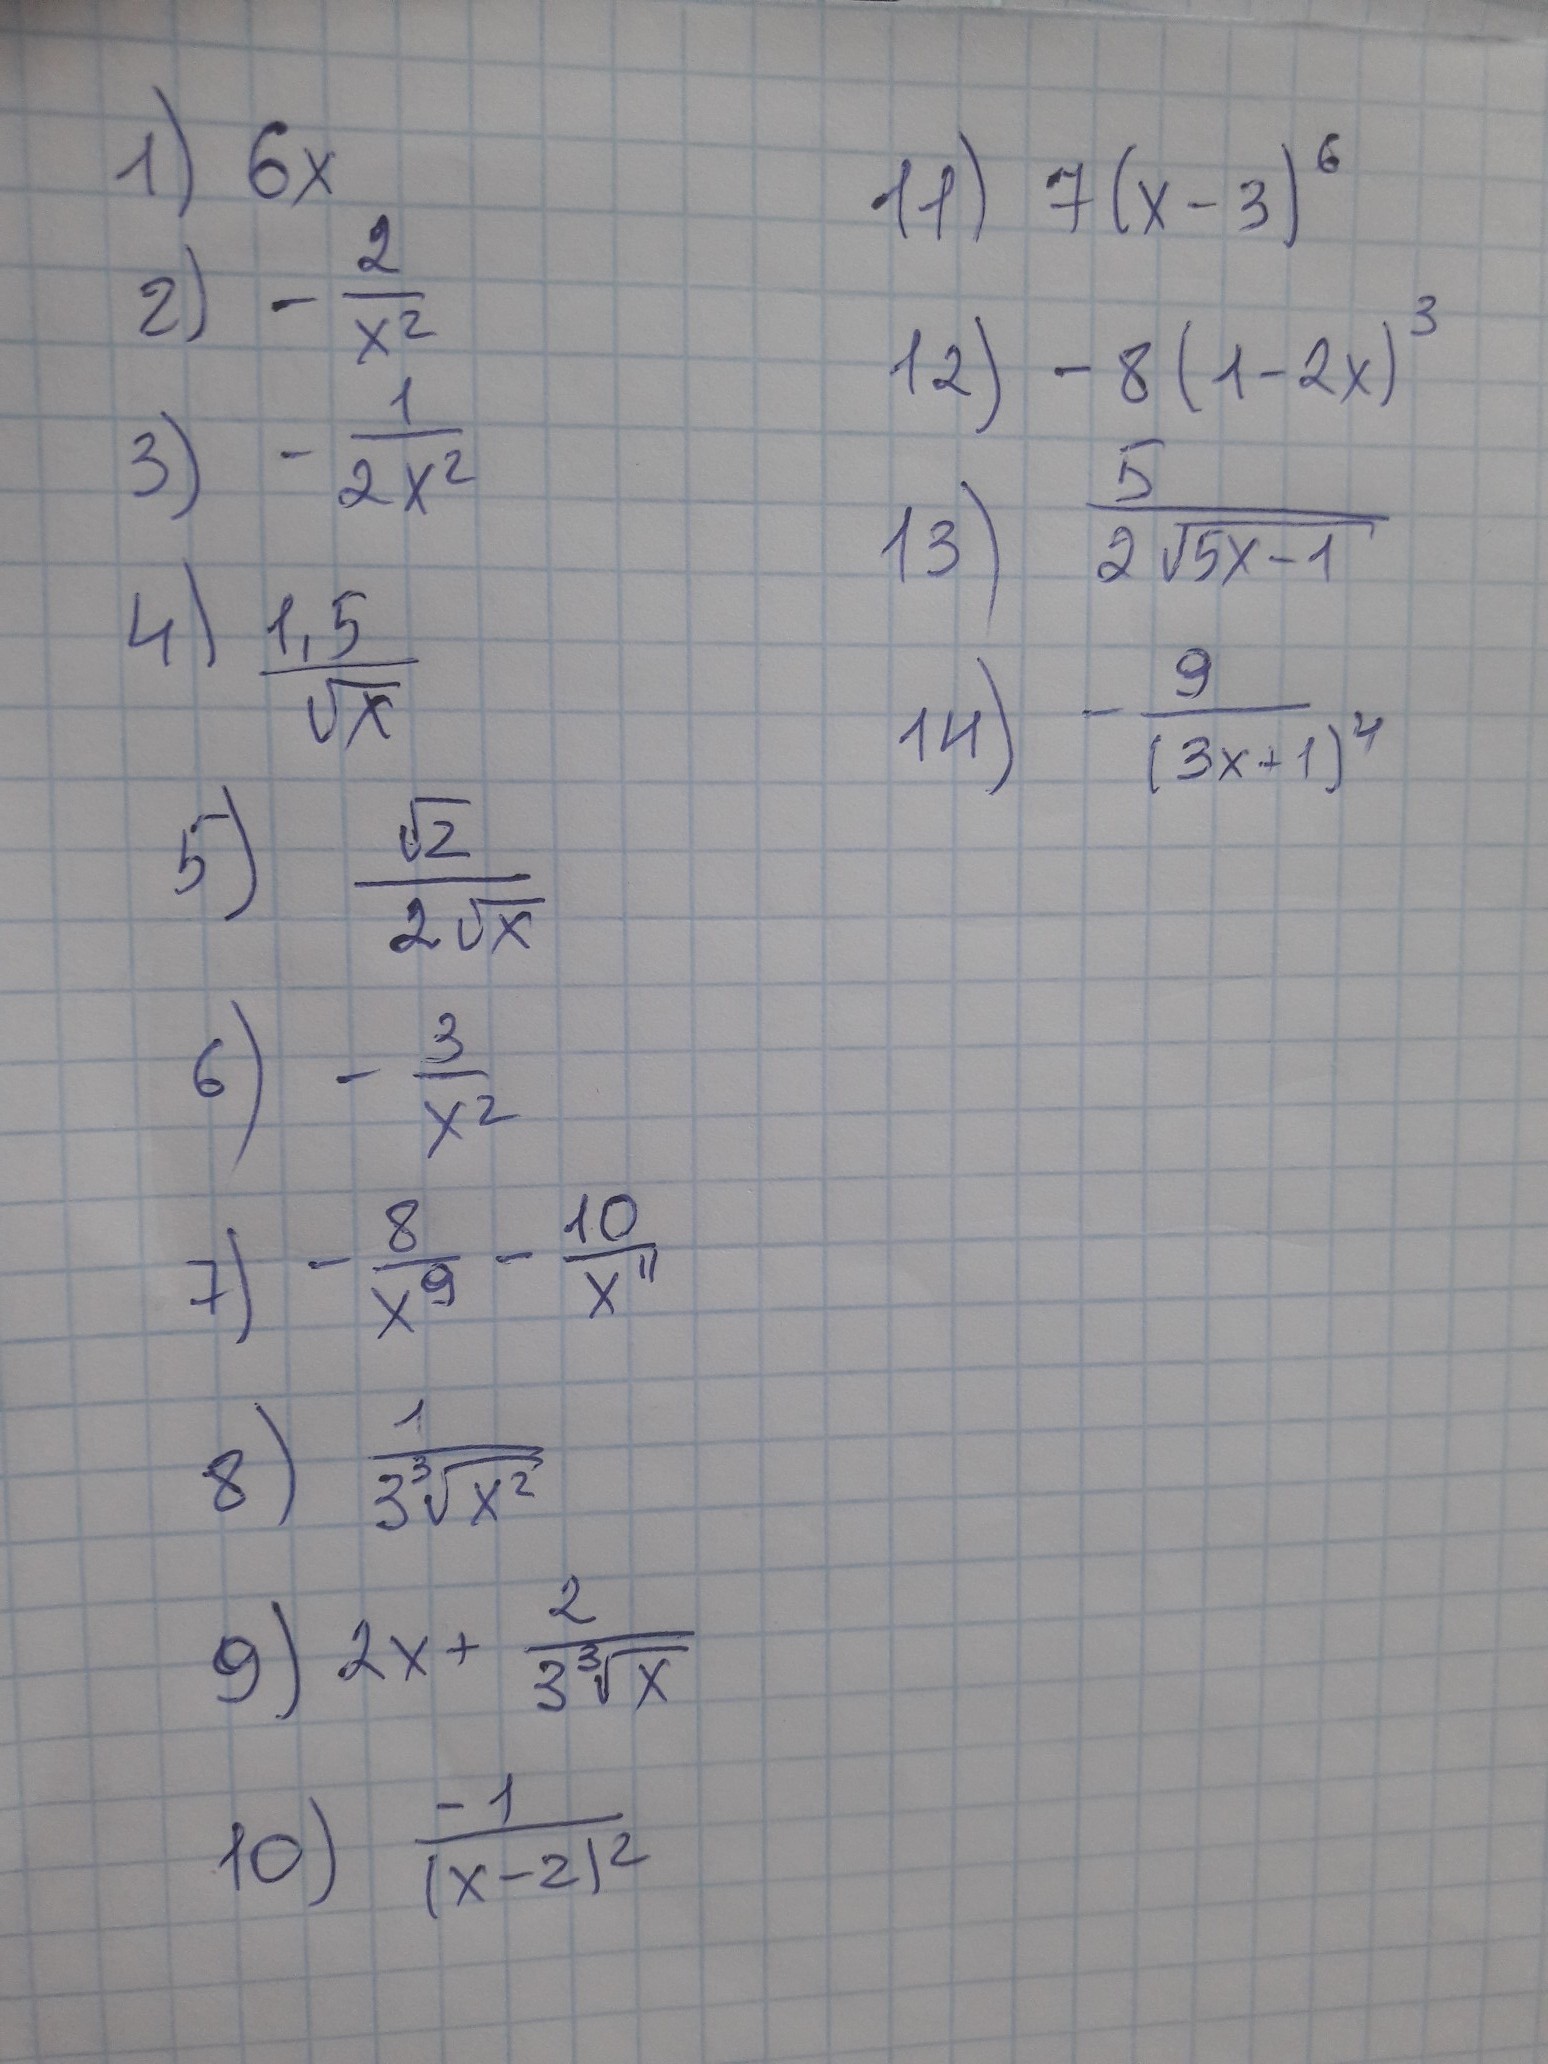 1) 6x
2) - 2/x²
3) - 1/2x²
4) 1,5/√x
5) √2/2√x
6) - 3/x²
7) - 8/x⁹ - 10/x¹¹
8) 1/3∛x²
9) 2x + 2/3∛x
10) -1/(x-2)²
11) 7(x-3)⁶
12) -8(1-2x)³
13) 5/2√5x-1
14) - 9/(3x+1)⁴